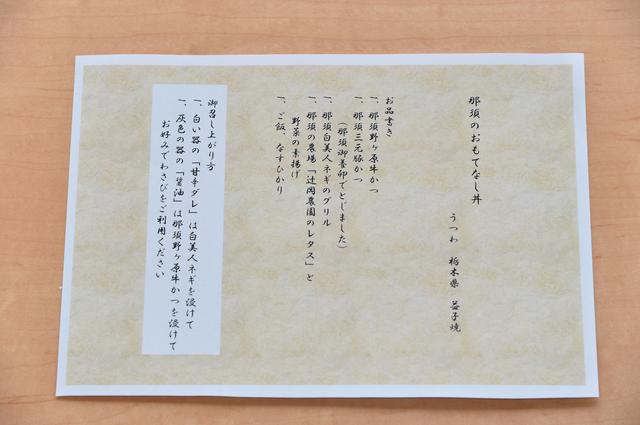 那須のおもてなし丼
うつわ 栃木県 益子焼
お品書き
一、那須野ヶ原牛かつ
一、那須三元豚かつ
（那須御養卵でとじました）
一、那須白美人ネギのグリル
一、那須の農場「辻岡農園のレタス」と
野菜の素揚げ
一、ご飯、なすひかり
御召し上がり方
一、白い器の「甘辛ダレ」は白美人ネギを浸けて
一、灰色の器の「醤油」は那須野ヶ原牛かつを浸けて
お好みでわさびをご利用ください